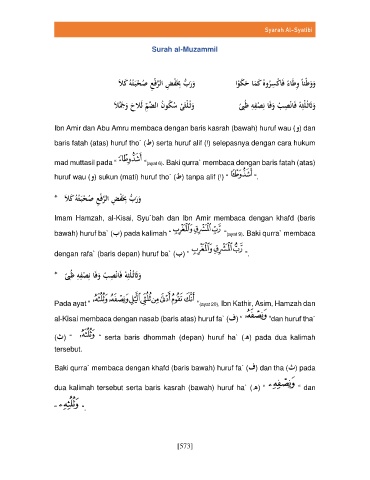 Syarah Al-Syatibi
Surah al-Muzammil
وَوَطْأً وِطَاءً فَاكْسِرُوهُ كَمَا حَكَوْا وَرَبُّ بِخَفْضِ الرَّفْعِ صُحْبَتُهُ كَلَا
وَثَا ثُلُثِهِ فَانْصِبْ وَفَا نِصْفِهِ ظُبًى وَثُلْثَيْ سُكُونُ الضَّمِّ لَاحَ وَجَمَّلَا
Ibn Amir dan Abu Amru membaca dengan baris kasrah (bawah) huruf wau (و) dan
baris fatah (atas) huruf tho` (ط) serta huruf alif (ا) selepasnya dengan cara hukum
mad muttasil pada " أَشَدُّ وِطَآءً "(ayat 6). Baki qurra` membaca dengan baris fatah (atas)
huruf wau (و) sukun (mati) huruf tho` (ط) tanpa alif (ا) " أَشَدُّ وَطْـًٔا ".
* وَرَبُّ بِخَفْضِ الرَّفْعِ صُحْبَتُهُ كَلَا
Imam Hamzah, al-Kisai, Syu`bah dan Ibn Amir membaca dengan khafd (baris
bawah) huruf ba` (ب) pada kalimah " رَّبِّ ٱلْمَشْرِقِ وَٱلْمَغْرِبِ "(ayat 9). Baki qurra` membaca
dengan rafa` (baris depan) huruf ba` (ب) " رَّبُّ ٱلْمَشْرِقِ وَٱلْمَغْرِبِ ".
* وَثَا ثُلُثِهِ فَانْصِبْ وَفَا نِصْفِهِ ظُبًى
Pada ayat " أَنَّكَ تَقُومُ أَدْنَىٰ مِن ثُلُثَىِ ٱلَّيْلِ وَنِصْفَهُۥ وَثُلُثَهُۥ "(ayat 20), Ibn Kathir, Asim, Hamzah dan
al-Kisai membaca dengan nasab (baris atas) huruf fa` (ف) " وَنِصْفَهُۥ "dan huruf tha`
(ث) " وَثُلُثَهُۥ " serta baris dhommah (depan) huruf ha` (ه) pada dua kalimah
tersebut.
Baki qurra` membaca dengan khafd (baris bawah) huruf fa` (ف) dan tha (ث) pada
dua kalimah tersebut serta baris kasrah (bawah) huruf ha` (ه) " وَنِصْفِهِۦ " dan
" وَثُلُثِهِۦ ".
[573]